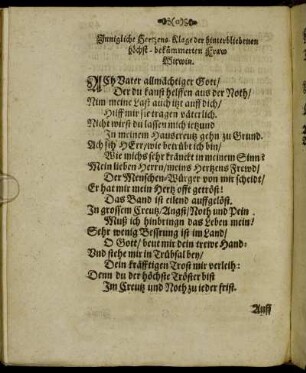 Innigliche Hertzens-Klage der hinterbliebenen
höchst-bekümmerten Fraw
Witwin.
ACh Vater allmächtiger Gott/
Der du kanst helffen aus der Noth/
Nim meine Last auch itzt auff dich/
Hilff mir sie tragen väterlich.
Nicht wirst du lassen mich ietzund
In meinem Hauscreutz gehn zu Grund.
Ach sih HErr/wie betrübt ich bin/
Wie michs sehr kränckt in meinem Sinn:
Mein lieben Herrn/meins Hertzens Frewd/
Der Menschen-Würger von mir scheidt/
Er hat mir mein Hertz offt getröst:
Das Band ist eilend auffgelöst.
In grossem Creutz/Angst/Noth und Pein
Muß ich hinbringn das Leben mein/
Sehr wenig Bessrung ist im Land/
O Gott/beut mir dein trewe Hand:
Und stehe mir in Trübsal bey/
Dein kräfftigen Trost mir verleih:
Denn du der höchste Tröster bist
Im Creutz und Noth zu ieder frist.
Auff